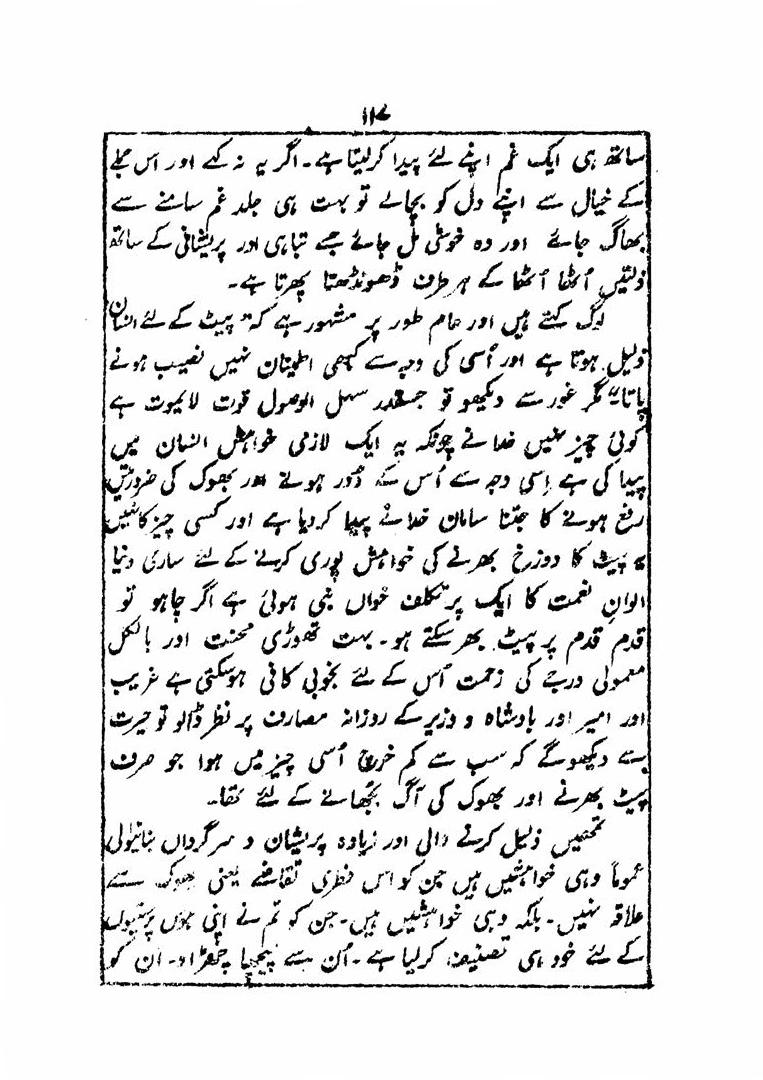 ۱۱۷
ساتھ ہی ایک غم اپنے لئے پیدا کرلیتا ہے۔ اگر یہ نہ کہے اور اس جملے
کے خیال سے اپنے دل کو بچالے تو بہت ہی جلد غم سامنے سے
بھاگ جائے اور وہ خوشی مل جائے جسے تباہی اور پریشانی کے ساتھ
ذلتیں اُٹھا اُٹھا کے ہر طرف ڈھونڈھتا پھرتا ہے۔
لوگ کہتے ہیں اور عام طور پر مشہور ہے کہ "پیٹ کے لئے انسان
ذلیل ہوتا ہے اور اُسی کی وجہ سے کبھی اطمینان نہیں نصیب ہونے
پاتا۔" مگر غور سے دیکھو تو جسقدر سہل الوصول قوت لایموت ہے
کوئی چیز نہیں خدا نے چونکہ یہ ایک لازمی خواہش انسان میں
پیدا کی ہے اِسی وجہ سے اُس کے دُور ہونے اور بھوک کی ضرورتیں
رفع ہونے کا جتنا سامان خدا نے پیدا کردیا ہے اور کسی چیز کا نہیں
پیٹ کا دوزخ بھرنے کی خواہش پوری کرنے کے لئے ساری دنیا
الوانِ نعمت کا ایک پرتکلف خواں بنی ہوئی ہے اگر چاہو تو
قدم قدم پر پیٹ بھر سکتے ہو۔ بہت تھوڑی محنت اور بالکل
معمولی درجے کی زحمت اُس کے لئے بخوبی کافی ہوسکتی ہے غریب
اور امیر اور بادشاہ و وزیر کے روزانہ مصارف پر نظر ڈالو تو حیرت
سے دیکھو گے کہ سب سے کم خرچ اُسی چیز میں ہوا جو صرف
پیٹ بھرنے اور بھوک کی آگ بجھانے کے لئے تھا۔
تمھیں ذلیل کرنے والی اور زیادہ پریشان و سرگرداں بنانیوالی
عموماً وہی خواہشیں ہیں جن کو اس فطری تقاضے یعنی بھوک سے
علاقہ نہیں۔ بلکہ وہی خواہشیں ہیں۔ جن کو تم نے اپنی ہوس پرستیوں
کے لئے خود ہی تصنیف کرلیا ہے۔ اُن سے پیچھا چھڑاؤ۔ ان کو